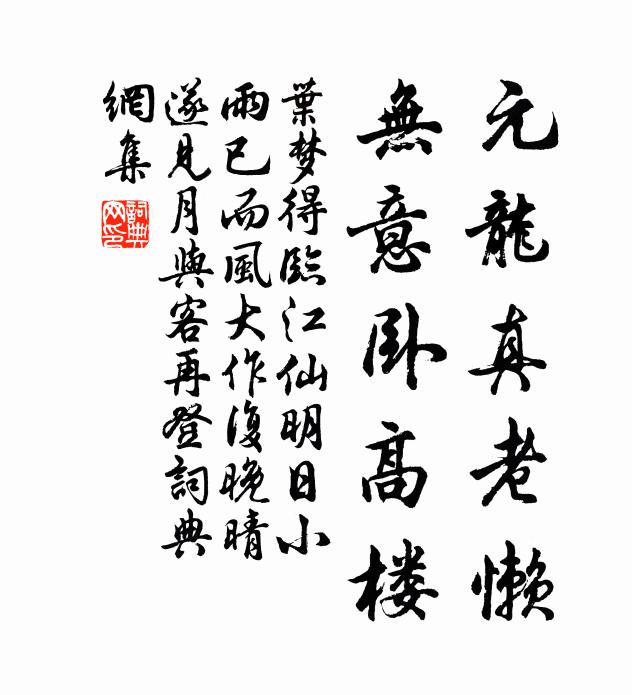 元龍真老懒
無意卧高楼
葉梦得臨江仙明日小
雨已而風大作復晚晴
遂見月與客再登詞典
網集
詞典
网印